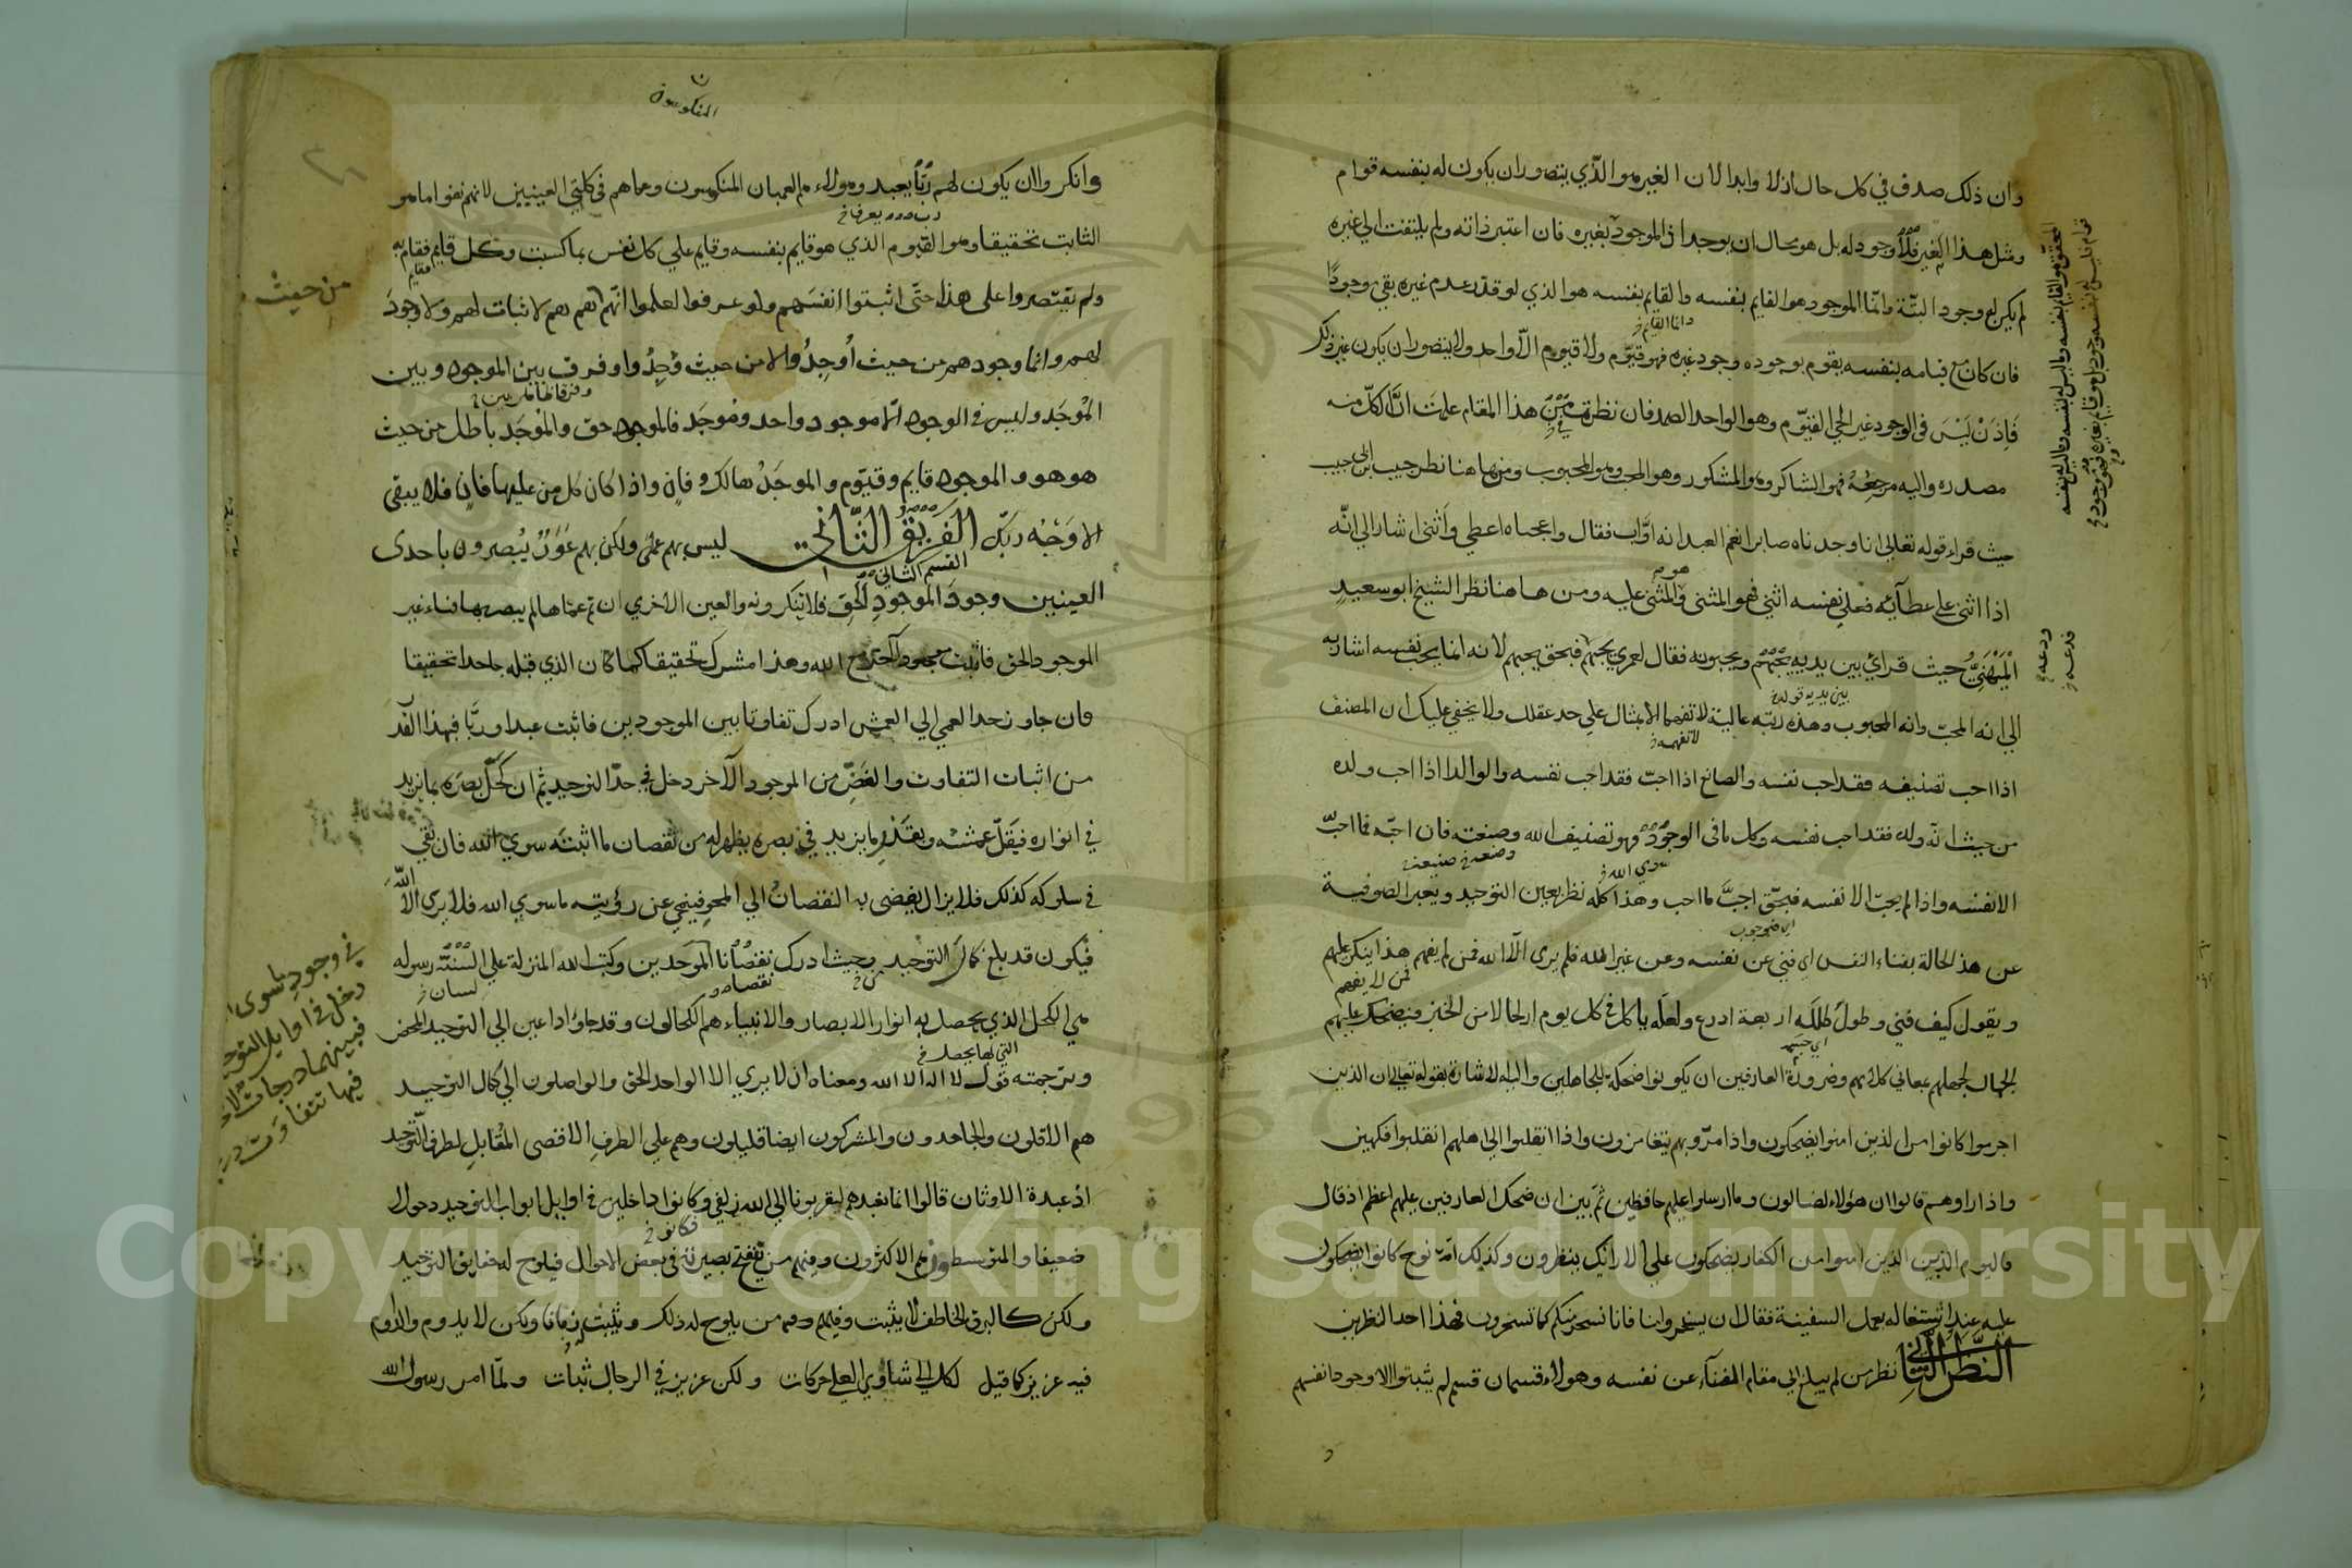 وان ذلك صدق في كل حال ازلا وابدا لان الغير هو الذي يتصور ان يكون له بنفسه قوام
ومثل هذا الغير فلا وجود له بل هو محال ان يوجد اذ الموجود بغيره فان اعتبر ذاته ولم يلتفت الى غيره
لم يكن له وجود البتة وانما الموجود هو القايم بنفسه والقايم بنفسه هو الذي لو قدر عدم غيره بقي وجودا
فان كان مع قيامه بنفسه يقوم بوجوده وجود غيره فهو قيوم ولا قيوم الا واحد ولا يتصور ان يكون غير ذلك
فاذن ليس في الوجود غير الحي القيوم وهو الواحد الصمد فان نظرت من هذا المقام علمت ان الكل منه
مصدره واليه مرجعه فهو الشاكر وهو المشكور وهو المحب وهو المحبوب ومن هاهنا نظر حبيب ابن ابي حبيب
حيث قراء قوله تعالى انا وجدناه صابرا نعم العبد انه اواب فقال واعجباه اعطي واثنى اشار الى انه
اذا اثنى على عطآئه فعلى نفسه اثنى فهو المثني والمثنى عليه ومن هاهنا نظر الشيخ ابو سعيد
الميهني حيث قرئ بين يديه يحبهم ويحبونه فقال لعمري يحبهم فبحق يحبهم لانه انما يحب نفسه اشار به
الى انه المحب وانه المحبوب وهذه رتبه عالية لا تفهمها الا بمثال على حد عقلك ولا يخفى عليك ان المصنف
اذا احب تصنيفه فقد احب نفسه والصانع اذا احب فقد احب نفسه والوالد اذا احب ولده
من حيث انه ولده فقد احب نفسه وكل ما في الوجود فهو تصنيف الله وصنعته فان احبه فما احب
الا نفسه واذا لم يحب الا نفسه فبحق احب ما احب وهذا كله نظر بعين التوحيد ويعبر الصوفية
عن هذه الحالة بفناء النفس اى فني عن نفسه وعن غير الله فلم يرى الا الله فمن لم يفهم هذا ينكر عليهم
ويقول كيف فني وطول ظله اربعة اذرع ولعله ياكل في كل يوم ارطالا من الخبز فيضحك عليهم
الجهال لجهلهم بمعاني كلامهم وضرورة العارفين ان يكونوا ضحكة للجاهلين واليه الاشارة بقوله تعالى ان الذين
اجرموا كانوا من الذين امنوا يضحكون واذا مروا بهم يتغامزون واذا انقلبوا الى اهلهم انقلبوا فكهين
واذا راوهم قالوا ان هؤلاء لضالون وما ارسلوا عليهم حافظين ثم بين ان ضحك العارفين عليهم اعظم اذ قال
فاليوم الذين امنوا من الكفار يضحكون على الارائك ينظرون وكذلك امة نوح كانوا يضحكون
عليه عند اشتغاله بعمل السفينة فقال ان تسخروا منا فانا نسخر منكم كما تسخرون فهذا احد النظرين
النظر الثاني نظر من لم يبلغ الى مقام الفنآء عن نفسه وهولاء قسمان قسم لم يثبتوا الا وجود انفسهم
المنكوسون
وانكروا ان يكون لهم رب يعبد وهؤلاء هم العميان المنكوسون وعماهم في كلتي العينين لانهم نفوا ما هو
الثابت تحقيقا وهو القيوم الذي هو قايم بنفسه وقايم على كل نفس بما كسبت وكل قايم فقايم به
ولم يقتصروا على هذا حتى اثبتوا انفسهم ولو عرفوا لعلموا انهم من حيث هم هم لا ثبات لهم ولا وجود
لهم وانما وجودهم من حيث أوجدوا لا من حيث وجدوا وفرق بين الموجود وبين
الموجد وليس في الوجود الا موجود واحد وموجد فالموجود حق والموجد باطل من حيث
هو هو والموجود قايم وقيوم والموجد هالك وفان واذا كان كل من عليها فان فلا يبقى
الا وجه ربك الفريق الثاني ليس بهم عمى ولكن بهم عور يبصرون باحدى
العينين وجود الموجود الحق فلا تنكرونه والعين الاخري ان تم عماها لم يبصر بها فناء غير
الموجود الحق فاثبت موجودا آخر مع الله وهذا مشرك تحقيقا كما كان الذي قبله جاحدا تحقيقا
فان جاوز حد العمي الى العمش ادرك تفاوتا بين الموجودين فاثبت عبدا وربا فبهذا القدر
من اثبات التفاوت والغض من الموجود الآخر دخل في حد التوحيد ثم ان كحل بصره بما يزيد
في انواره فيقل عمشه وبقدر ما يزيد في بصره يظهر له من نقصان ما اثبته سوى الله فان بقي
في سلوكه كذلك فلا يزال يفضى به النقصان الى المحو فينمحي عن رؤيته ما سوى الله فلا يرى الا الله
فيكون قد بلغ كمال التوحيد وحيث ادرك نقصانا الموحدين وكتب الله المنزلة على السنة رسوله
هي الكحل الذي يحصل به انوار الابصار والانبياء هم الكحالون وقد جاؤا داعين الى التوحيد المحض
وترجمته قول لا اله الا الله ومعناه ان لا يرى الا الواحد الحق والواصلون الى كمال التوحيد
هم الاقلون والجاحدون والمشركون ايضا قليلون وهم على الطرف الاقصى المقابل لطرف التوحيد
اذ عبدة الاوثان قالوا انما نعبدهم ليقربونا الى الله زلفى وكانوا داخلين في اوايل ابواب التوحيد دخولا
ضعيفا والمتوسطون هم الاكثرون وفيهم من تنفتح بصيرته في بعض الاحوال فيلوح له حقايق التوحيد
ولكن كالبرق الخاطف لا يثبت وفيهم من يلوح له ذلك ويثبت زمانا ولكن لا يدوم والدوام
فيه عزيز كما قيل لكل الى شاو العلى حركات ولكن عزيز في الرجال ثبات ولما امر رسول الله
من حيث
في وجود ما سوى
دخل في اوايل التوحيد
فبينهما درجات لا
فيها تتفاوت